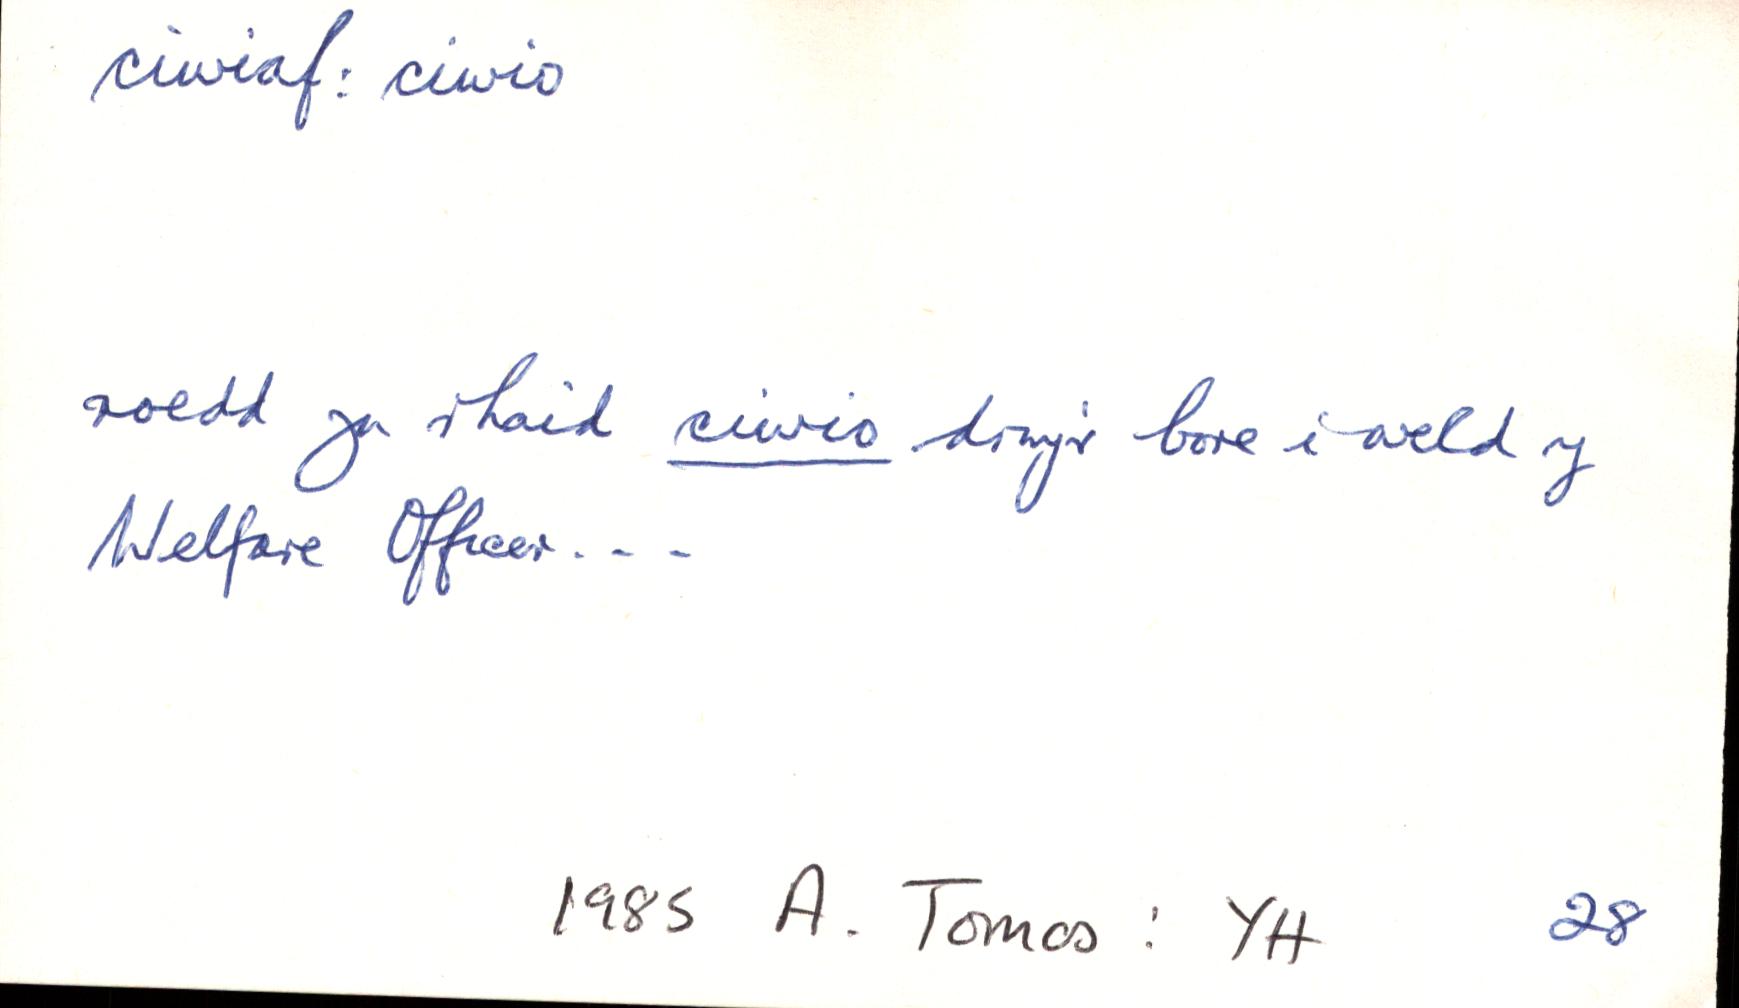 ciwiaf: ciwio
roedd yn rhaid ciwio drwy'r bore i weld y
Welfare Officer. - - -
1985 A. Tomos : YH 28